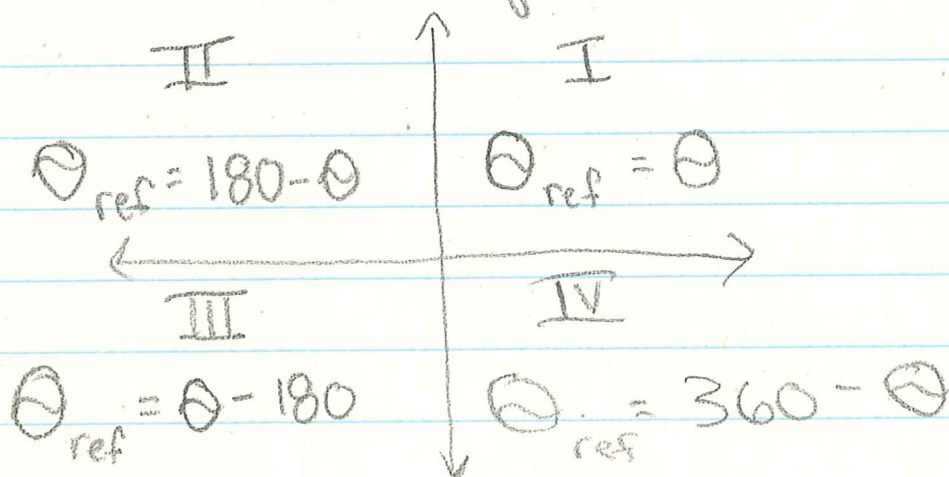 II I
θref = 180-θ θref = θ
III IV
θref = θ-180 θref = 360-θ